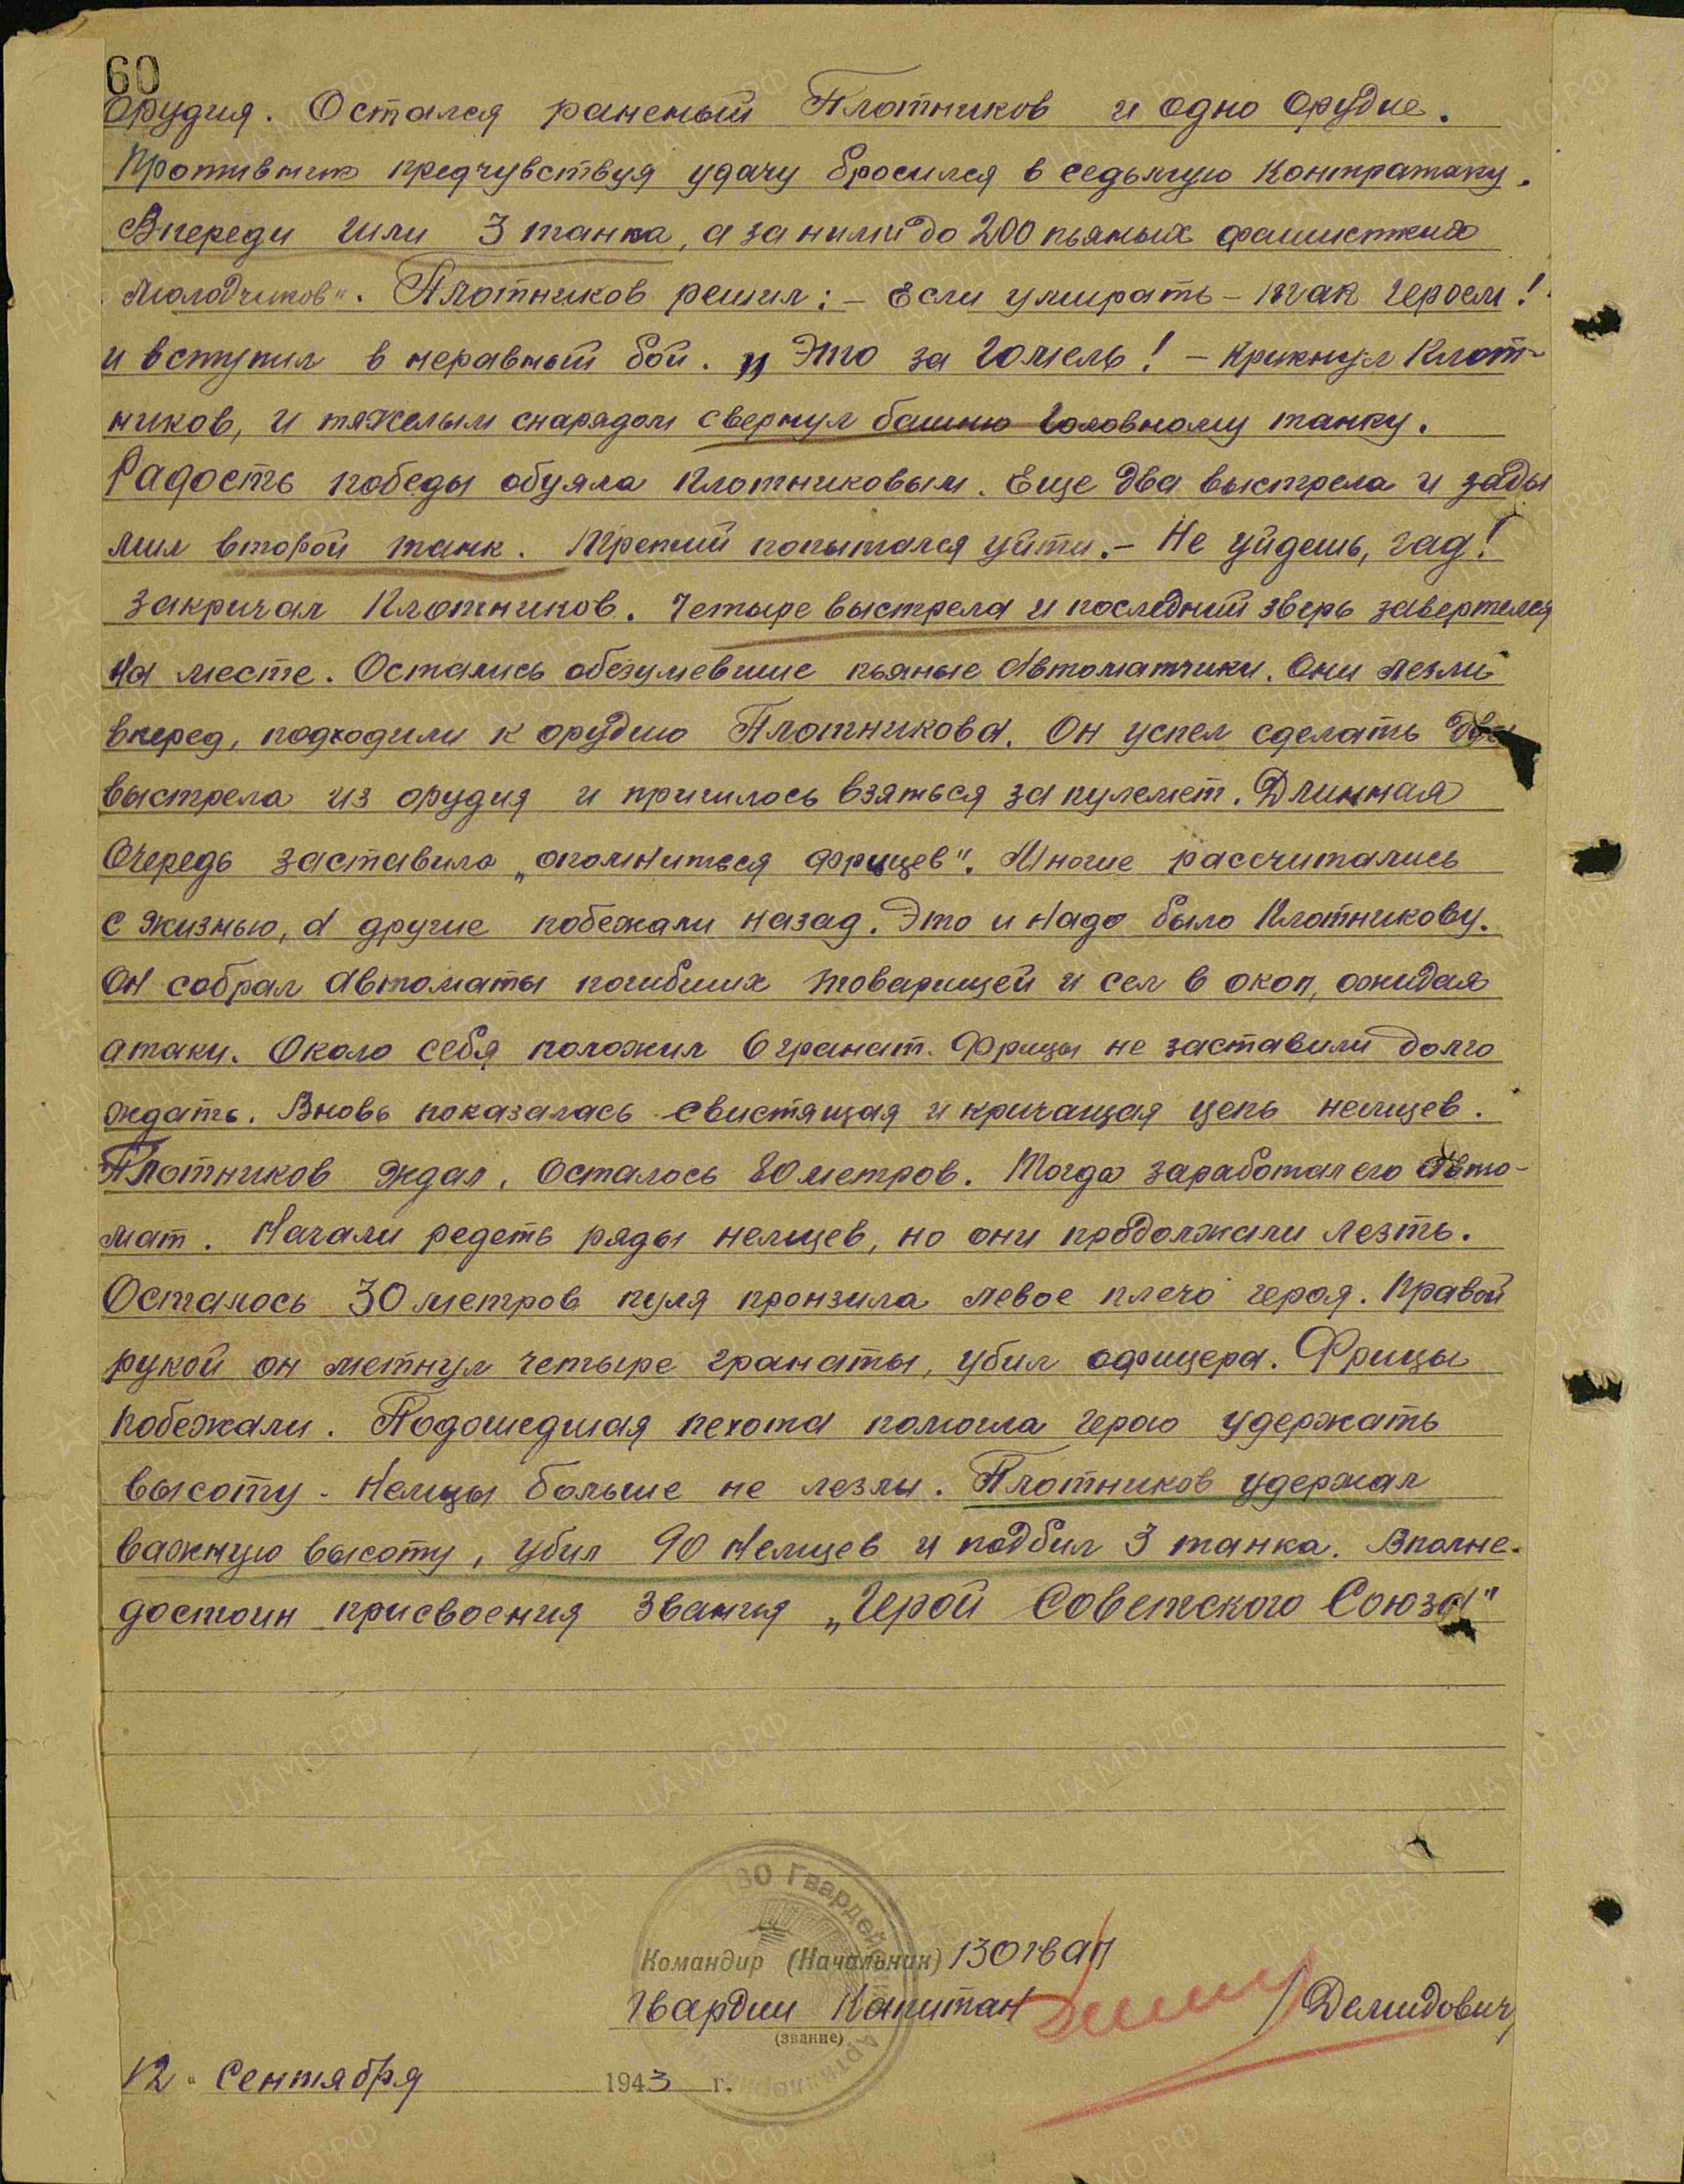 60
орудия. Остался раненый Плотников и одно орудие.
Противник предчувствуя удачу бросился в седьмую контратаку.
Впереди шли 3 танка, а за ними до 200 пьяных фашистких
молодчиков". Плотников решил: - Если умирать - так героем!
и вступил в неравный бой. „ Это за Гомель! - крикнул Плот-
ников, и тяжелым снарядом свернул башню головному танку.
Радость победы обуяла Плотниковым. Еще два выстрела и зады
мил второй танк. Третий попытался уйти. - Не уйдешь, гад!
закричал Плотников. Четыре выстрела и последний зверь завертелся
на месте. Остались обезумевшие пьяные автоматчики. Они лезли
вперед, подходили к орудию Плотникова. Он успел сделать два
выстрела из орудия и пришлось взяться за пулемет. Длинная
очередь заставила „опомниться фрицев". Многие рассчитались
с жизнью, а другие побежали назад. Это и надо было Плотникову.
Он собрал автоматы погибших товарищей и сел в окоп, ожидая
атаки. Около себя положил 6 гранат. Фрицы не заставили долго
ждать. Вновь показалась свистящая и кричащая цепь немцев.
Плотников ждал. Осталось 80 метров. Тогда заработал его авто-
мат. Начали редеть ряды немцев, но они продолжали лезть.
Осталось 30 метров пуля пронзила левое плечо героя. Правой
рукой он метнул четыре гранаты, убил офицера. Фрицы
побежали. Подошедшая пехота помогла герою удержать
высоту. Немцы больше не лезли. Плотников удержал
важную высоту, убил 90 немцев и подбил 3 танка. Вполне
достоин присвоения звания „Герой Советского Союза"
130 Гвардейский
Артиллерийский
Командир (Начальник) 130 гв ап
Гвардии Капитан / Демидович /
(звание)
12 " Сентября 1943 г.
ПАМЯТЬ НАРОДА
ЦА МО РФ